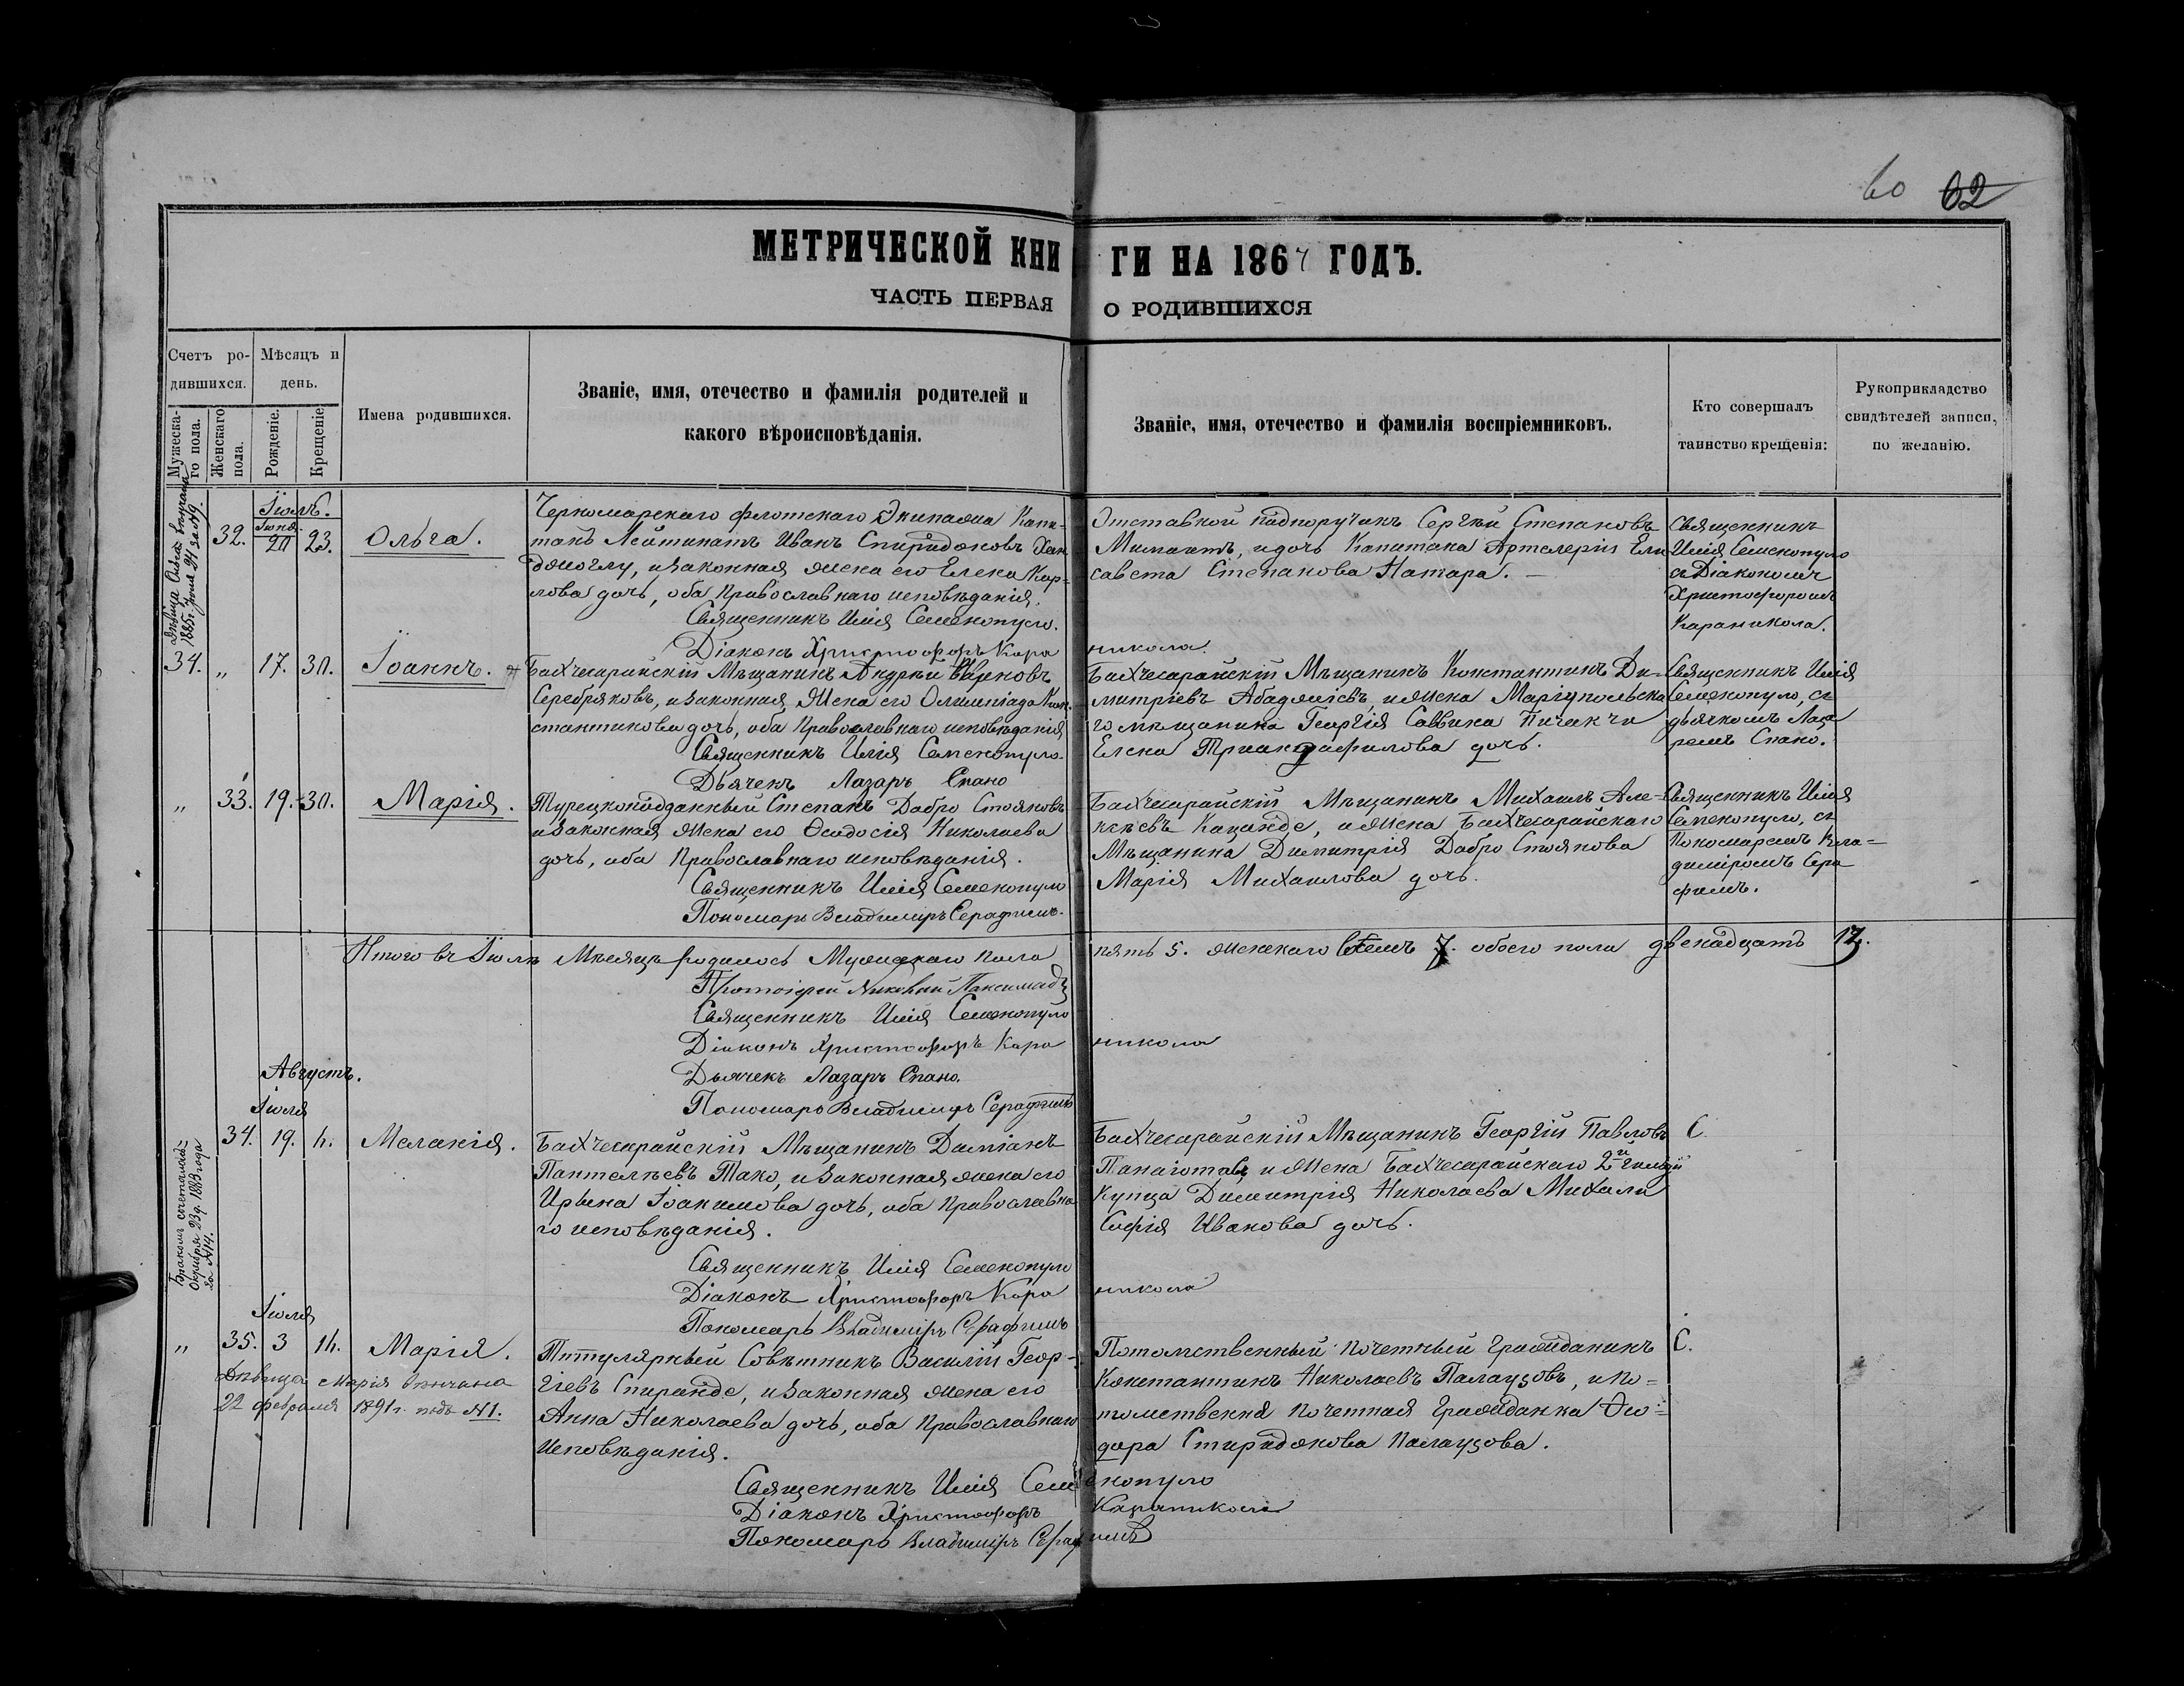 60 62
МЕТРИЧЕСКОЙ КНИГИ НА 1867 ГОДЪ.
ЧАСТЬ ПЕРВАЯ О РОДИВШИХСЯ
Счетъ родившихся.
Мужескаго пола.
Женскаго пола.
Мѣсяцъ и день.
Рожденіе.
Крещеніе
Имена родившихся.
Званіе, имя, отечество и фамилія родителей и
какого вѣроисповѣданія.
Званіе, имя, отечество и фамилія воспріемниковъ.
Кто совершалъ
таинство крещенія:
Рукоприкладство
свидѣтелей записи,
по желанію.
Дѣвица Ольга вѣнчана
1885 г. Іюня 24 за №9.
Іюль.
32. 20 23. Ольга.
Черноморскаго флотскаго Экипажа Капи-
танъ Лейтинатъ Иванъ Спиридоновъ Хан
джоглу, и законная жена его Елена Кар-
лова дочь, оба православнаго исповѣданія.
Священникъ Илія Семенопуло.
Діаконъ Христофоръ Кара никола.
Отставной подпоручикъ Сергѣй Степановъ
и дочь Капитана Артелеріи Ели-
савета Степанова Натара.
Священникъ
Илія Семенопуло
съ Діакономъ
Христофоромъ
Караникола.
34. „ 17. 30. Іоаннъ.
Бахчесарайскій Мѣщанинъ Андрей
Серебряковъ, и законная жена его Олимпіада Кон-
стантинова дочь, оба православнаго исповѣданія
Священникъ Илія Семенопуло.
Дьячекъ Лазарь Спано
Бахчесарайскій Мѣщанинъ Константинъ Ди-
митріевъ Абаджіевъ, и жена Маріупольска
го мѣщанина Георгія Саввина Пичакчи
Елена Триандафилова дочь.
Священникъ Илія
Семенопуло, съ
дьячкомъ Лаза
ремъ Спано.
„ 33. 19. 30. Марія.
Турецкоподданный Степанъ Добро Стояновъ
и законная жена его Ѳеодосія Николаева
дочь, оба Православнаго исповѣданія.
Священникъ Илія Семенопуло
Пономарь Владимиръ Серафимъ.
Бахчесарайскій Мѣщанинъ Михаилъ Але-
ксѣевъ Кацинде, и жена Бахчесарайскаго
Мѣщанина Димитрія Добро Стоянова
Марія Михаилова дочь.
Священникъ Илія
Семенопуло, съ
Пономаремъ Вла=
диміромъ Сера
фимъ.
Итого въ Іюлѣ Мѣсяцѣ родилось Мужескаго пола пять 5. женскаго семь 7. обоего пола двенадцать 12.
Протоіерей Николай
Священникъ Илія Семенопуло
Діаконъ Христофоръ Кара никола
Дьячекъ Лазарь Спано.
Пономарь Владимиръ Серафимъ
Августъ.
Іюля
Бракомъ сочеталась
Октября 23 д. 1883 года
за №14.
34. 19. 6. Меланія.
Бахчесарайскій Мѣщанинъ Даміанъ
Пантелѣевъ Тако, и законная жена его
Ирина Іоакимова дочь, оба Православна
го исповѣданія.
Священникъ Илія Семенопуло
Діаконъ Христофоръ Кара никола
Пономарь Владиміръ Серафимъ
Бахчесарайскій Мѣщанинъ Георгій Павловъ
и жена Бахчесарайскаго 2й гильдіи
Купца Димитрія Николаева Михали
Софія Иванова дочь.
С.
Іюля
„ 35. 3 16. Марія.
Дѣвица Марія вѣнчана
22 февраля 1891 г. подъ №1.
Титулярный Совѣтникъ Василій Геор-
гіевъ Спиранде, и законная жена его
Анна Николаева дочь, оба Православнаго
Исповѣданія.
Священникъ Илія Семенопуло
Діаконъ Христофоръ Караникола
Пономарь Владиміръ Серафимъ
Потомственный почетный гражданинъ
Константинъ Николаевъ Палаузовъ, и по=
томственна почетная гражданка Ѳео=
дора Спиридонова Палаузова.
С.